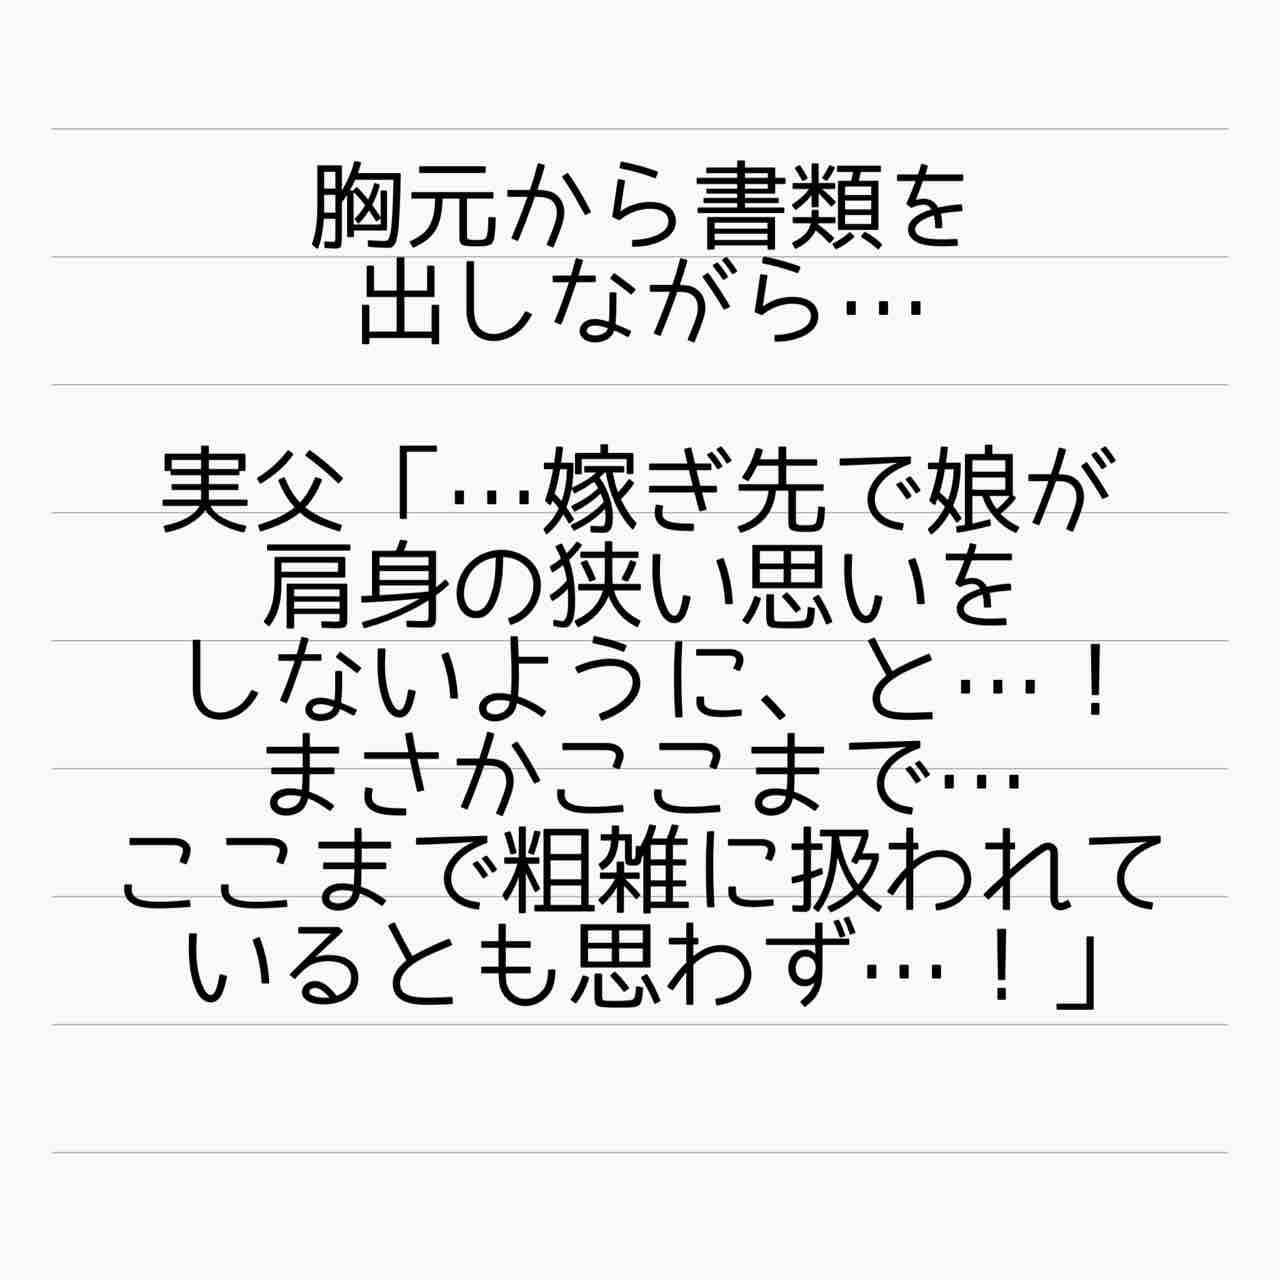 胸元から書類を
出しながら…
実父「…嫁ぎ先で娘が
肩身の狭い思いを
しないように、と…！
まさかここまで…
ここまで粗雑に扱われて
いるとも思わず…！」